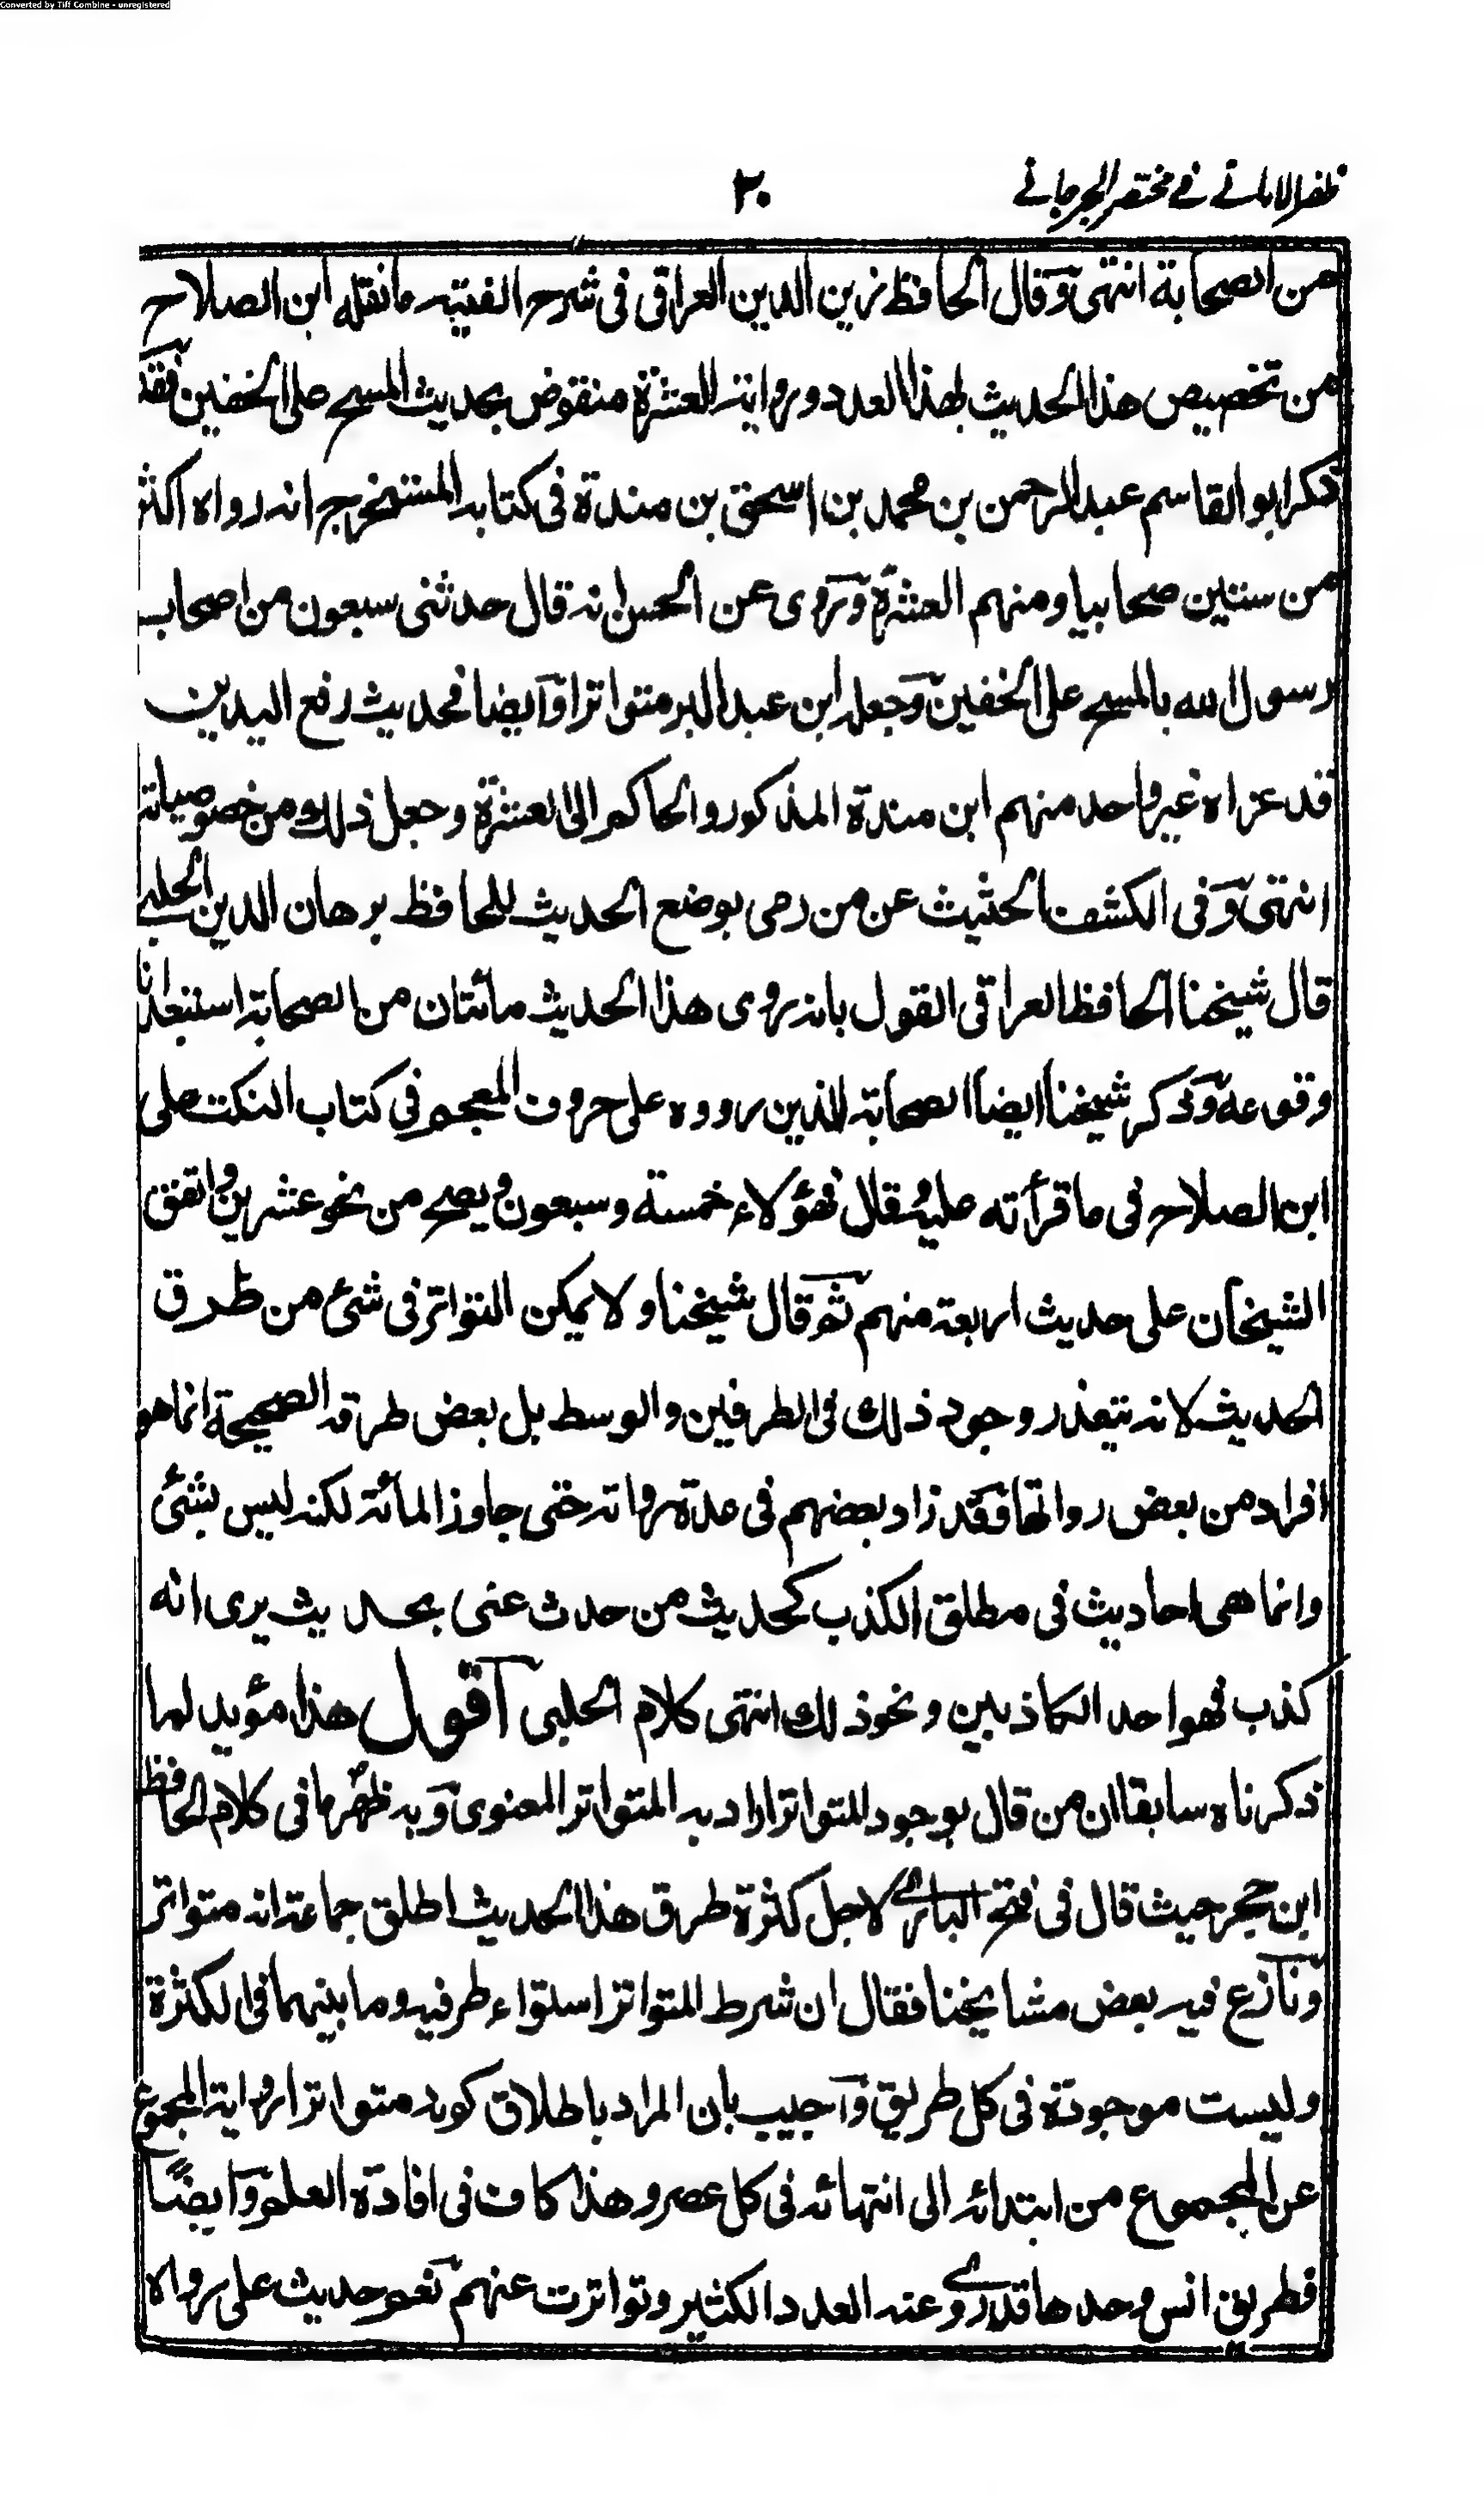 Converted by Tiff Combine - unregistered
ظفر الاماني في مختصر الجرجاني
۲۰
من الصحابة انتهى وقال الحافظ زين الدين العراقى فى شرح الفيته ما نقله ابن الصلاح
من تخصيص هذا الحديث بهذا العدد ورواية العشرة منقوض بحديث المسح على الخفين فقد
ذكر ابو القاسم عبد الرحمن بن محمد بن اسحق بن مندة فى كتابه المستخرج انه رواه اكثر
من ستين صحابيا ومنهم العشرة وروى عن الحسن انه قال حدثنى سبعون من اصحاب
رسول الله بالمسح على الخفين وجعله ابن عبد البر متواترا وايضا فحديث رفع اليدين
قد عزاه غير واحد منهم ابن مندة المذكور والحاكم الى العشرة وجعل ذلك من خصوصياته
انتهى وفى الكشف الحثيث عن من رمى بوضع الحديث للحافظ برهان الدين الحلبي
قال شيخنا الحافظ العراقى القول بانه روى هذا الحديث مائتان من الصحابة استبعد انا
وقوعه وذكر شيخنا ايضا الصحابة الذين رووه على حروف المعجم فى كتاب النكت على
ابن الصلاح فى ما قرأته عليه فقال فهؤلاء خمسة وسبعون ويصح من نحو عشرين واتفق
الشيخان على حديث اربعة منهم ثم قال شيخنا ولا يمكن التواتر فى شئ من طرق
الحديث لانه يتعذر وجود ذلك فى الطرفين والوسط بل بعض طرقه الصحيحة انما هو
افراد من بعض رواتها فقد زاد بعضهم فى عدة رواته حتى جاوز المائة لكنه ليس بشئ
وانما هى احاديث فى مطلق الكذب كحديث من حدث عنى بحديث يرى انه
كذب فهو احد الكاذبين ونحو ذلك انتهى كلام الحلبى اقول هذا مؤيد لما
ذكرناه سابقا ان من قال بوجود المتواتر اراد به المتواتر المعنوى وبه ظهر ما فى كلام الحافظ
ابن حجر حيث قال فى فتح الباري لاجل كثرة طرق هذا الحديث اطلق جماعة انه متواتر
ونازع فيه بعض مشايخنا فقال ان شرط المتواتر استواء طرفيه وما بينهما فى الكثرة
وليست موجودة فى كل طريق واجيب بان المراد باطلاق كونه متواترا رواية المجموع
عن المجموع من ابتدائه الى انتهائه فى كل عصر وهذا كاف فى افادة العلم وايضًا
فطريق انس وحدها قد روى عنه العدد الكثير وتواترت عنهم نعم حديث على رواه